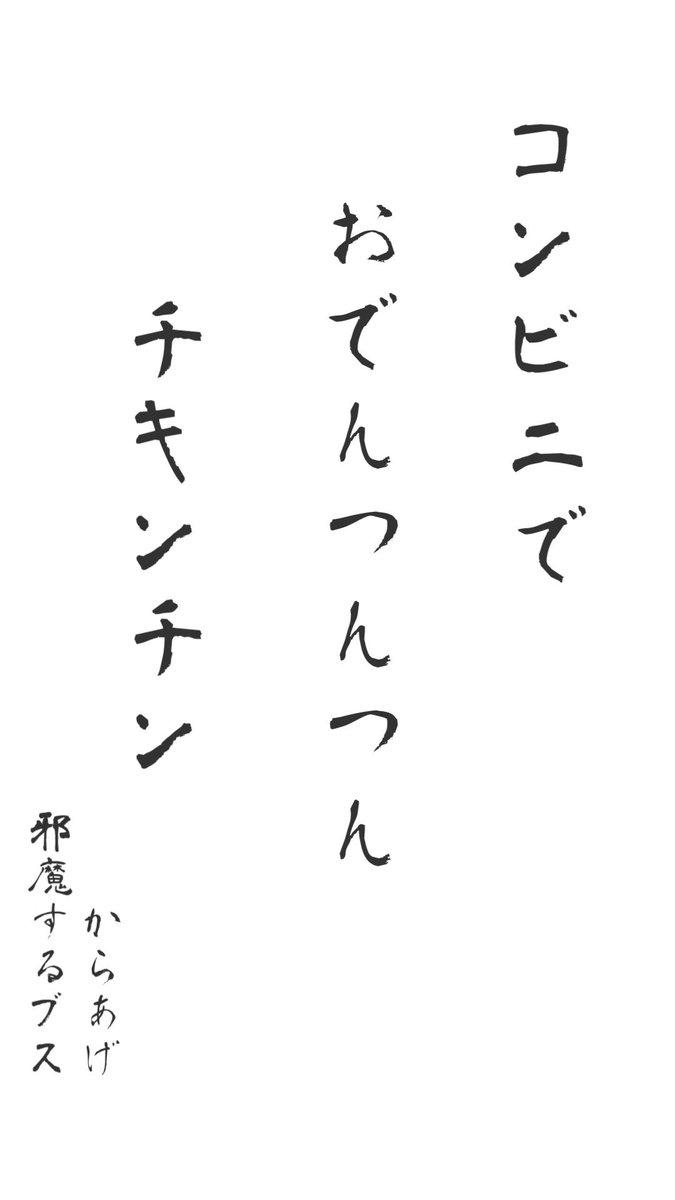 コンビニで
おでんつんつん
チキンチン
からあげ
邪魔するブス